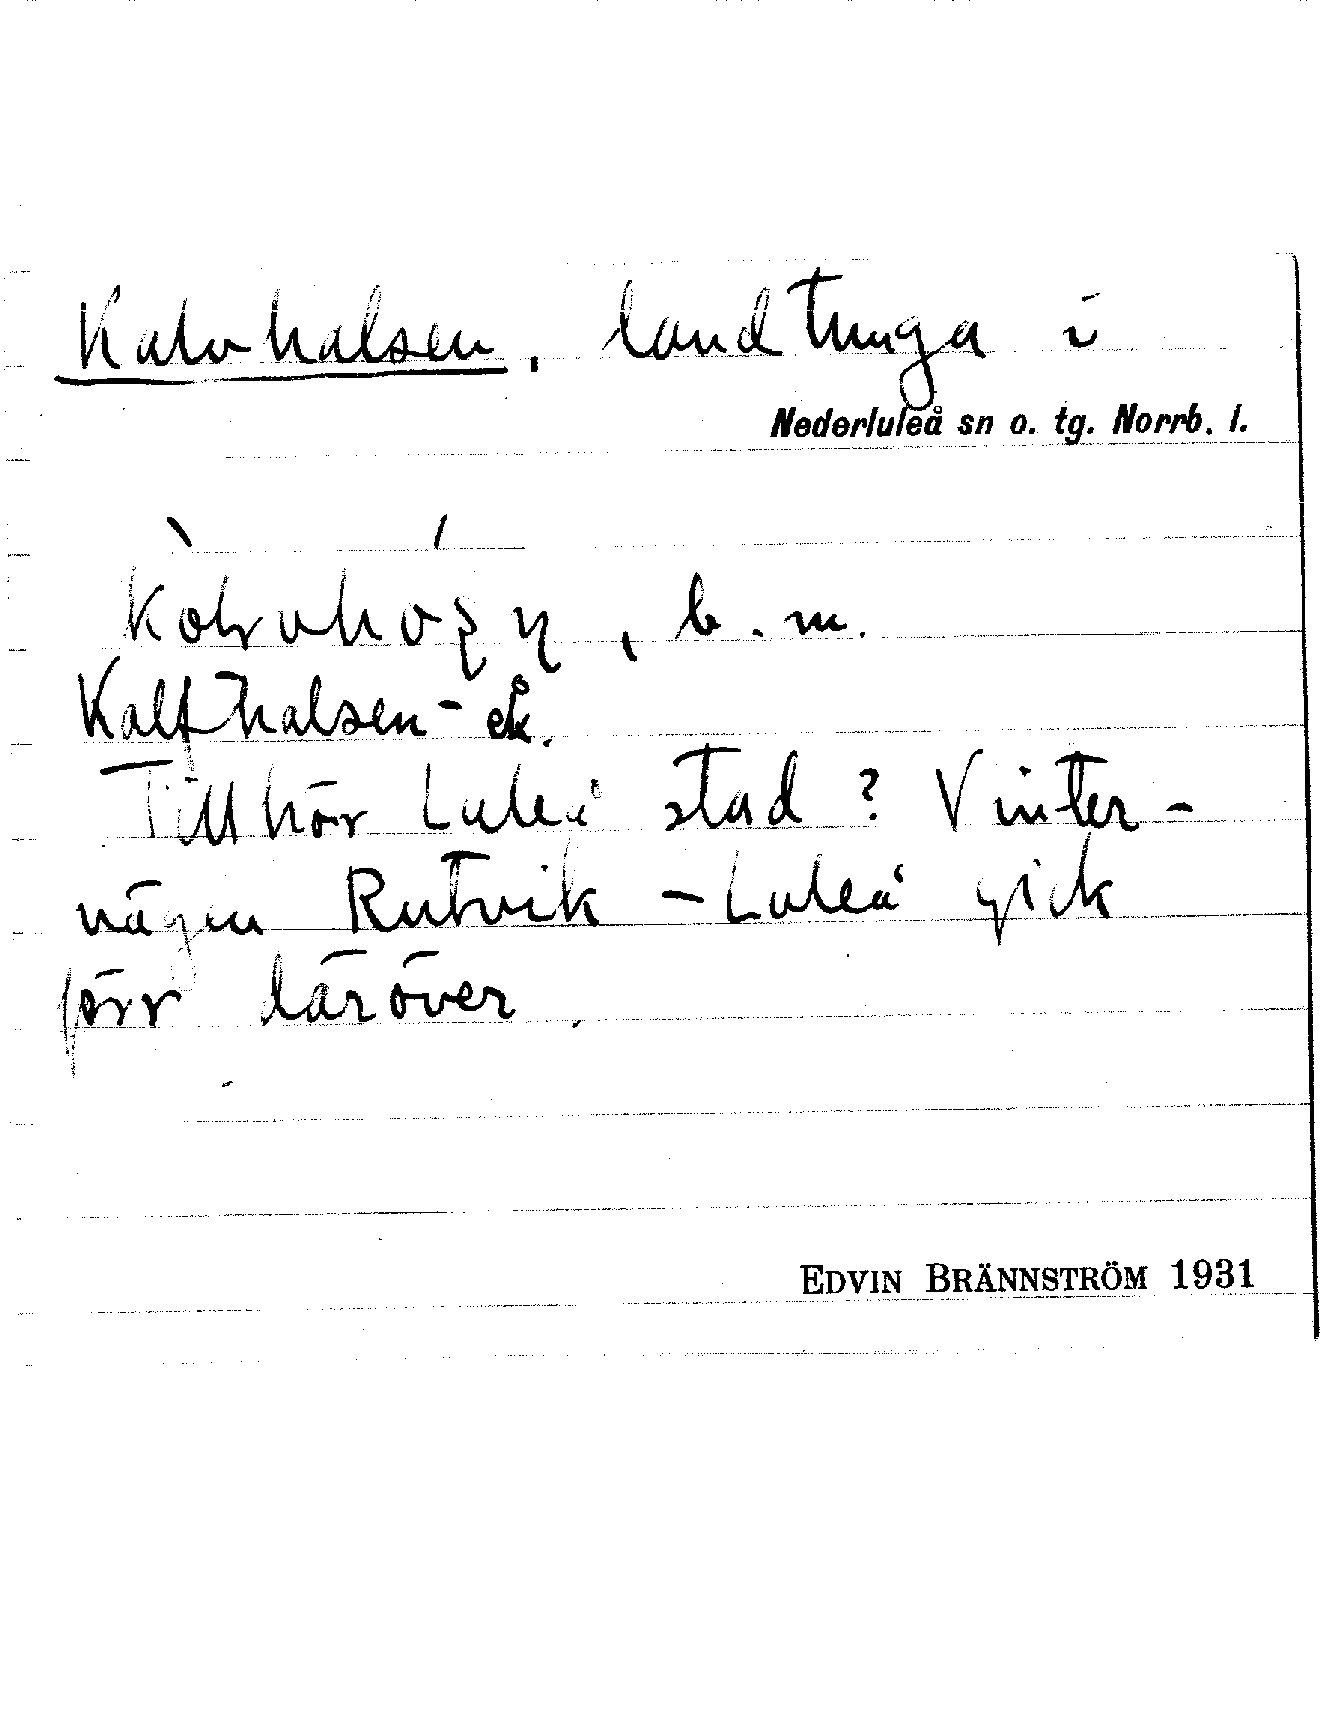 Kalvhalsen, landtunga i
Nederluleå sn o. tg. Norrb. l.
b. m.
Kalfhalsen - ek.
Tillhör Luleå stad? Vinter-
vägen Rutvik - Luleå gick
förr däröver.
EDVIN BRÄNNSTRÖM 1931